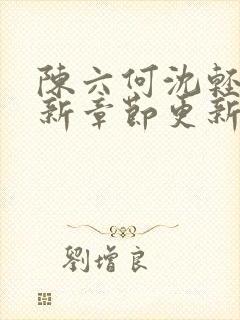 陳六何沈輕
新章節更新
劉增良